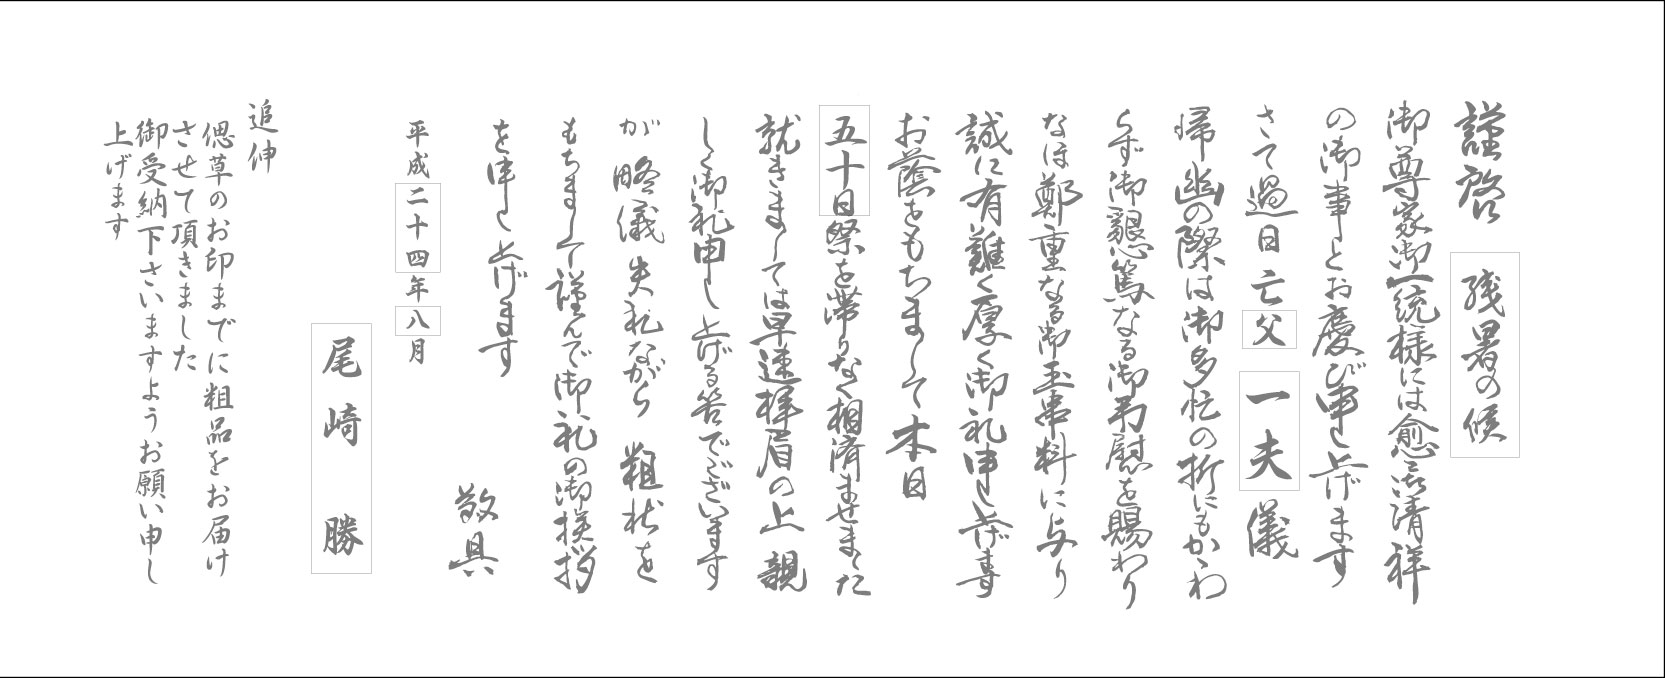 謹啓 残暑の候
御尊家御一統様には愈々御清祥
の御事とお慶び申し上げます
さて過日 亡 父 一夫 儀
帰幽の際は御多忙の折にもかゝわ
らず御懇篤なる御弔慰を賜わり
なほ鄭重なる御玉串料に与り
誠に有難く厚く御礼申し上げます
お蔭をもちまして本日
五十日祭を滞りなく相済ませました
就きましては早速拝眉の上 親
しく御礼申し上げる筈でございます
が 略儀 失礼ながら 粗状を
もちまして謹んで御礼の御挨拶
を申し上げます
敬具
平成二十四年八月
尾崎 勝
追伸
偲草のお印までに粗品をお届け
させて頂きました
御受納下さいますようお願い申し
上げます